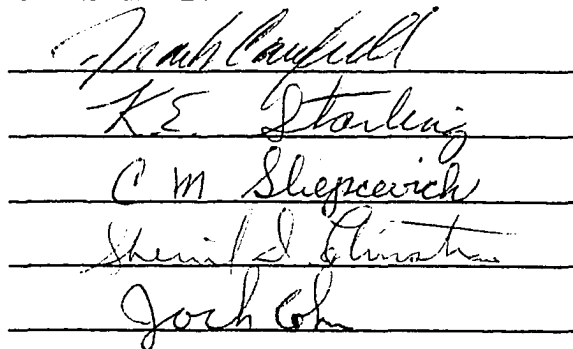 Campbell
K.E. Starling
C M Sliepcevich
Sherril D. Christian
Jock Cohn